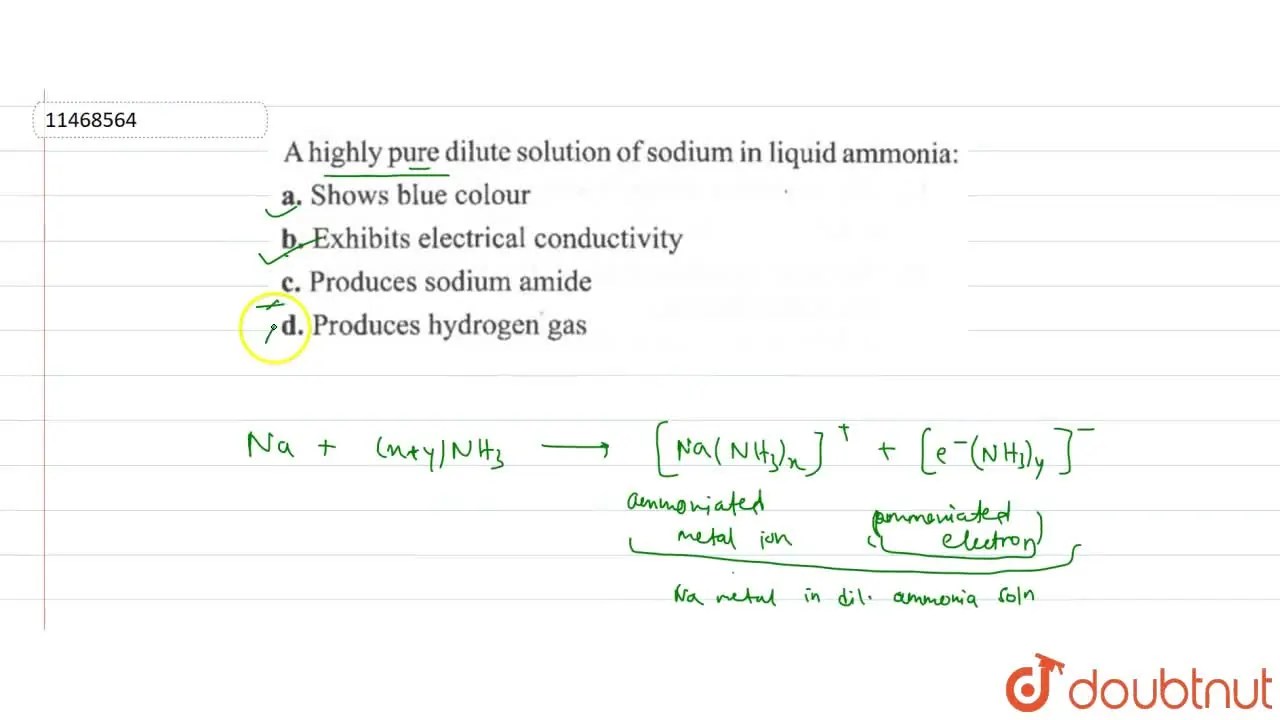 11468564
A highly pure dilute solution of sodium in liquid ammonia:
a. Shows blue colour
b. Exhibits electrical conductivity
c. Produces sodium amide
d. Produces hydrogen gas
Na + (x+y)NH₃ ⟶ [Na(NH₃)ₓ]⁺ + [e⁻(NH₃)ᵧ]⁻
ammoniated metal ion
ammoniated electron
Na metal in dil. ammonia soln
doubtnut